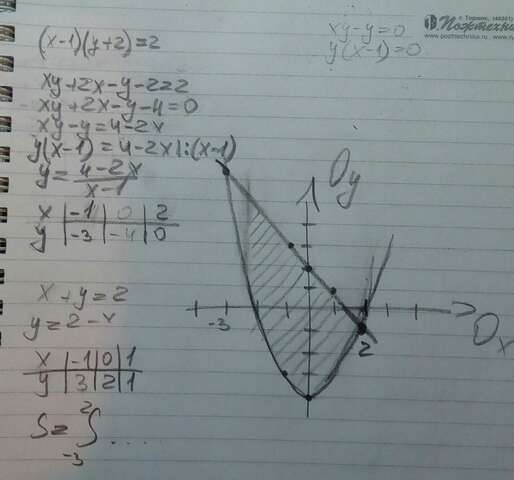 (x-1)(y+2)=2
xy+2x-y-2=2
xy+2x-y-4=0
xy-y=4-2x
y(x-1)=4-2x|:(x-1)
y=4-2x/x-1
x|-1|0|2
y|-3|-4|0
x+y=2
y=2-x
x|-1|0|1
y|3|2|1
S=∫ ....
2
-3
xy-y=0
y(x-1)=0
г. Торжок,
Пожтехника
www.pozhtechnika.ru
Oy
-3
2
Ox